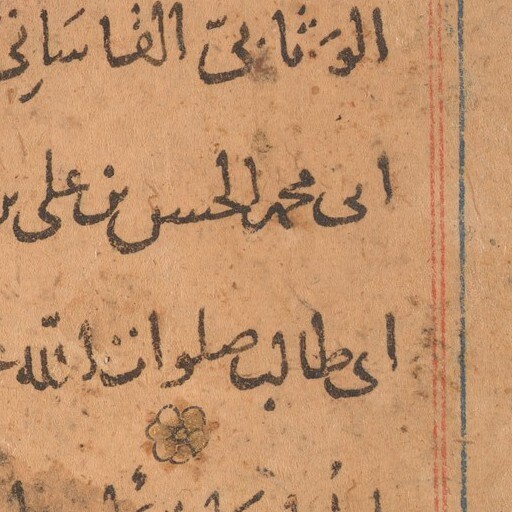 الوَثَابىّ القَاسَانِى
ابى محمد الحسن بن على بن
ابى طالب صلوات الله